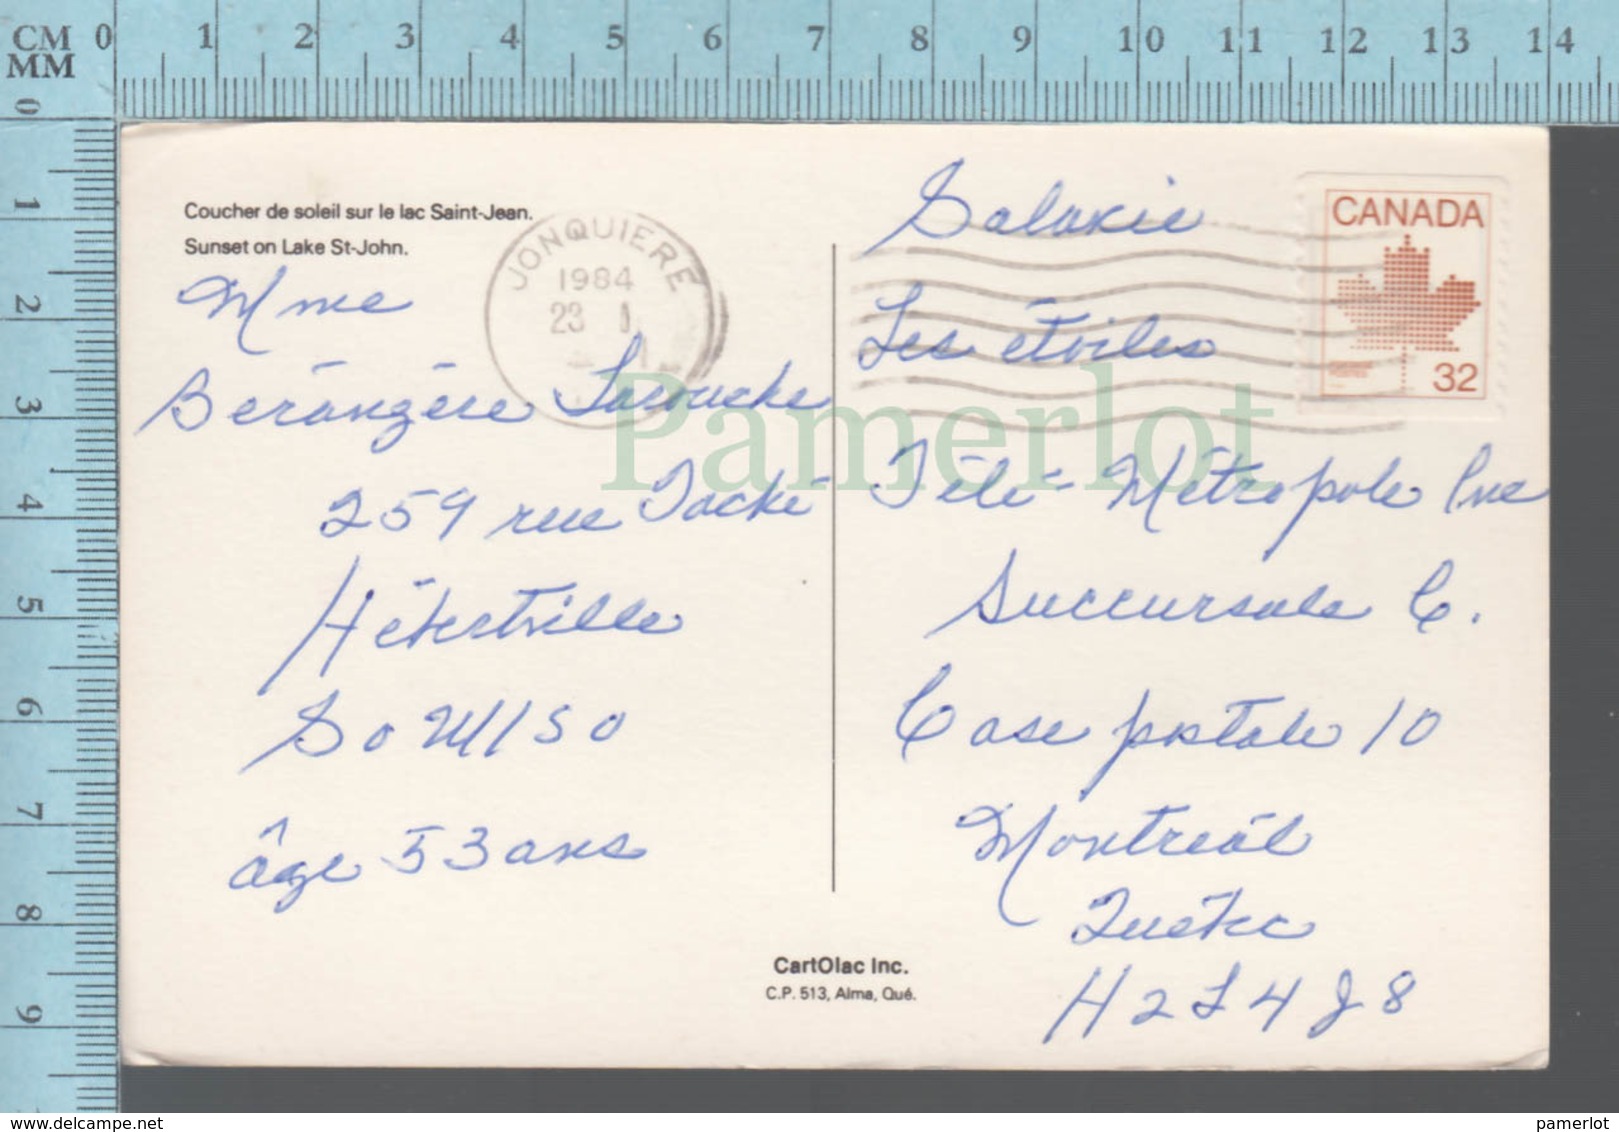 CM 0 1 2 3 4 5 6 7 8 9 10 11 12 13 14
MM
0 1 2 3 4 5 6 7 8 9
Coucher de soleil sur le lac Saint-Jean.
Sunset on Lake St-John.
JONQUIERE
1984
23 I
CANADA
32
Mme
Bérángére Larouche
259 rue Taché
Hébertville
Go W1S0
âge 53 ans
Galaxie
Les étoiles
Télé-Métropole Inc
Succursale C.
Case postale 10
Montreál
Québec
H2L4J8
CartOlac Inc.
C.P. 513, Alma, Qué.
Pamerlot
www.delcampe.net
pamerlot